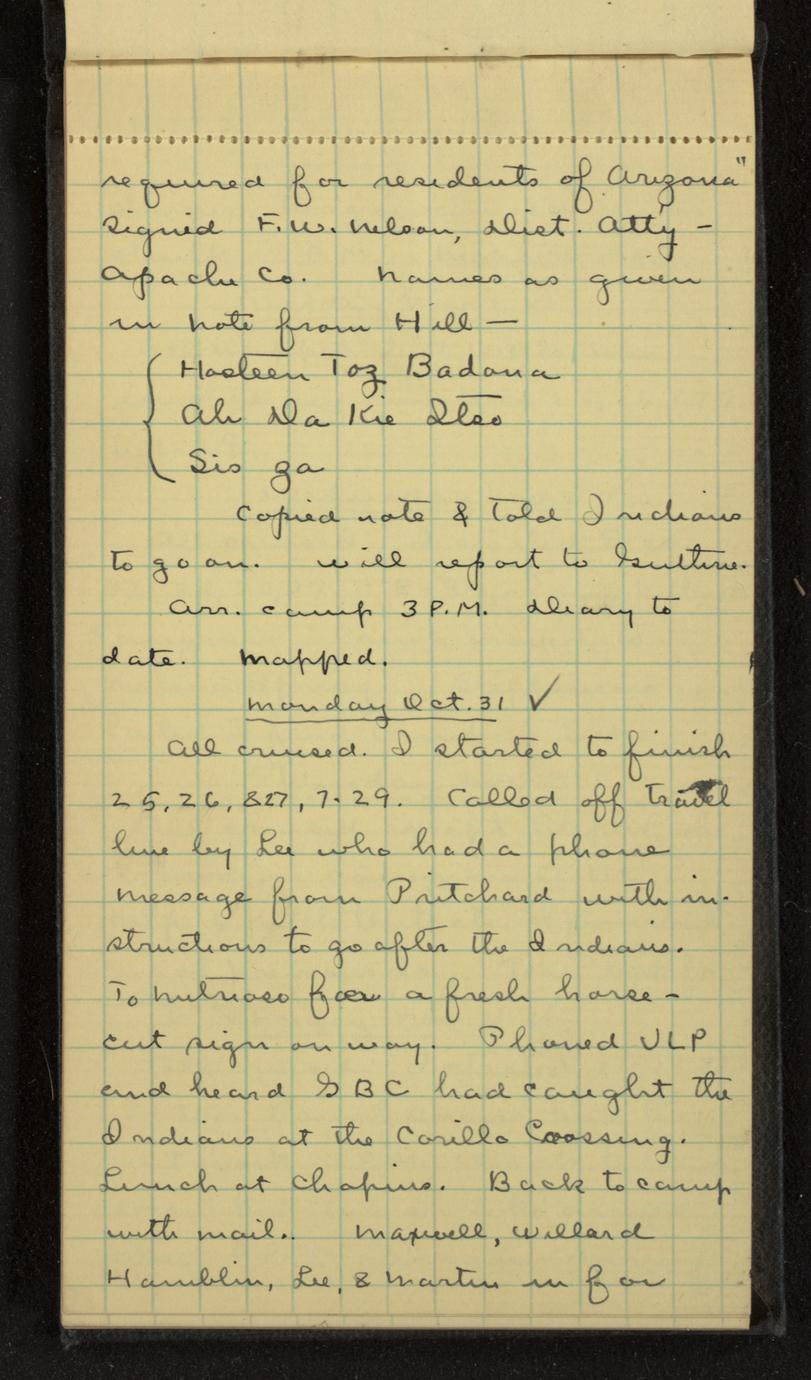 required for residents of Arizona"
signed F.W. Nelson, Dist. Att'y -
Apache Co. Names as given
in note from Hill —
Hosteen Toz Badona
Ah Da Kie Stso
Sis ga
Copied note & told Indians
to go on. will report to Guthrie.
Arr. camp 3 P.M. Diary to
date. Mapped.
Monday Oct. 31 ✓
All cruised. I started to finish
25, 26, &27, 7-29. Called off travel
line by Lee who had a phone
message from Pritchard with in-
structions to go after the Indians.
To Nutrioso for a fresh horse -
cut sign on way. Phoned JLP
and heard GBC had caught the
Indians at the Corillo Crossing.
Lunch at Chapins. Back to camp
with mail. Maxwell, Willard
Hamblin, Lee, & Martin in for